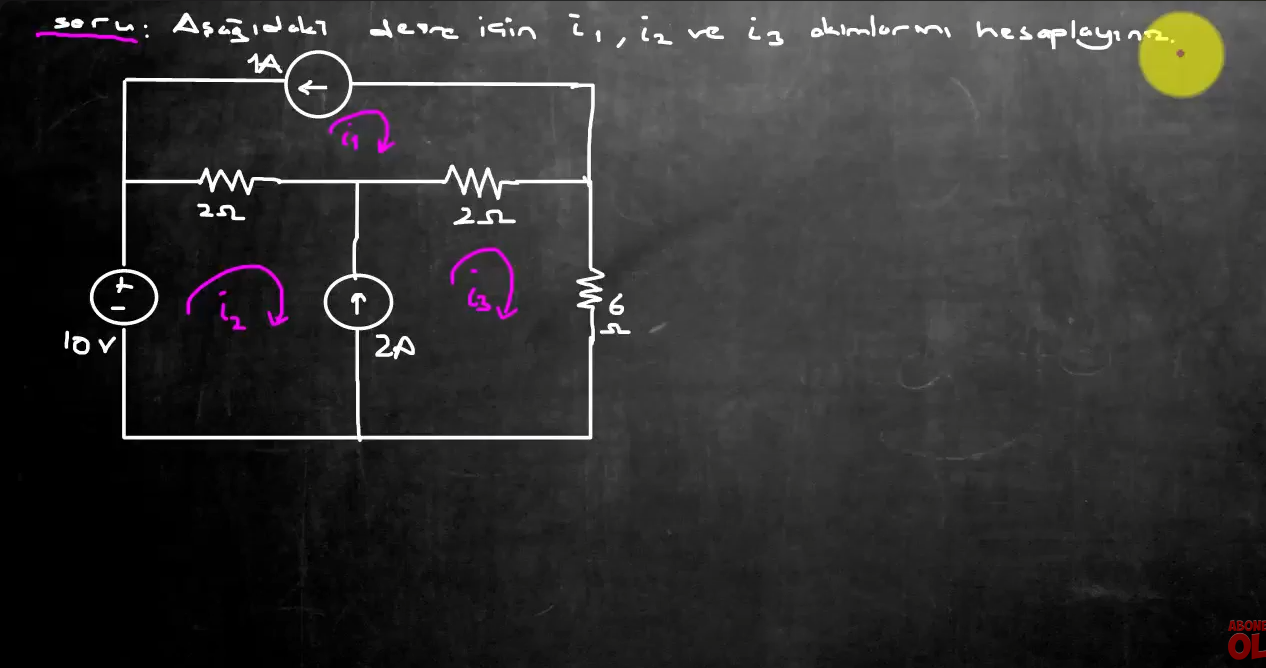 soru: Aşağıdaki devre için i1, i2 ve i3 akımlarını hesaplayınız.
1A
i1
2Ω
2Ω
+
-
10V
i2
2A
i3
6
Ω
ABONE
OL